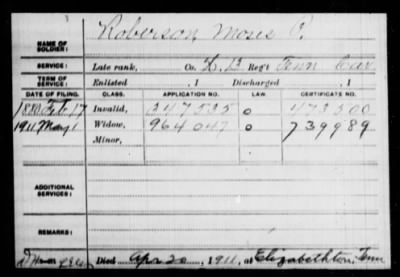 NAME OF SOLDIER: Roberson, Moses P.
SERVICE: Late rank, Co. K, 13 Reg't Tenn Cav
TERM OF SERVICE: Enlisted , 1 Discharged , 1
DATE OF FILING. CLASS. APPLICATION NO. LAW. CERTIFICATE NO.
1880 Feb 17 Invalid, 347535 0 473500
1911 May 1 Widow, 964047 0 739989
Minor,
ADDITIONAL SERVICES:
REMARKS:
Died Apr 20, 1911, at Elizabethton, Tenn